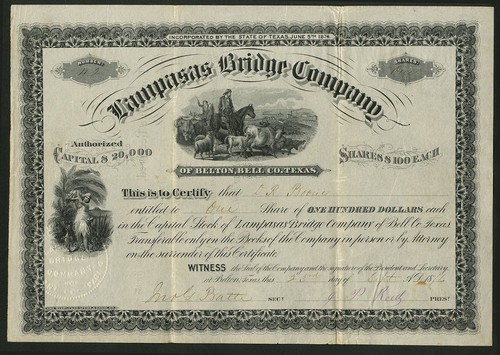 INCORPORATED BY THE STATE OF TEXAS, JUNE 5TH 1874.
NUMBER
SHARES
Lampasas Bridge Company
Authorized
CAPITAL $ 20,000
SHARES $ 100 EACH
OF BELTON, BELL CO. TEXAS.
This is to Certify that
entitled to One Share of ONE HUNDRED DOLLARS each
in the Capital Stock of Lampasas Bridge Company of Bell Co. Texas
Transferable only on the Books of the Company in person or by Attorney
on the surrender of this Certificate.
WITNESS the Seal of the Company and the signature of the President and Secretary
at Belton, Texas this day of
SECY
PREST